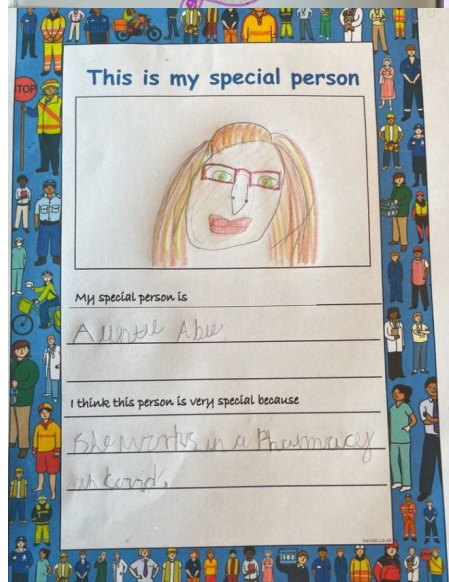 STOP
This is my special person
My special person is
Auntie Abie
I think this person is very special because
She works in a Pharmacy
in Covid.